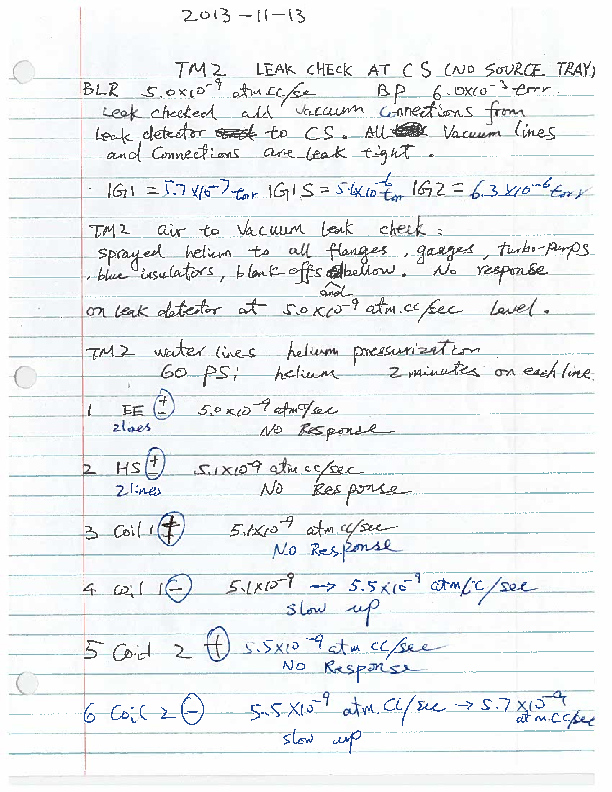 2013-11-13
TM2 LEAK CHECK AT CS (NO SOURCE TRAY)
BLR 5.0x10⁻⁹ atm.cc/sec BP 6.0x10⁻³ torr.
Leak checked all vacuum connections from
leak detector to CS. All vacuum lines
and connections are leak tight.
IG1 = 5.7x10⁻⁷ torr IG1S = 5.1x10⁻⁶ torr IG2 = 6.3x10⁻⁶ torr
TM2 air to vacuum leak check:
sprayed helium to all flanges, gauges, turbo-pumps
, blue insulators, blank offs and bellow. No response
on leak detector at 5.0x10⁻⁹ atm.cc/sec level.
TM2 water lines helium pressurization
60 PSi helium 2 minutes on each line.
1 EE ± 5.0x10⁻⁹ atm cc/sec
2 lines No Response
2 HS ± 5.1x10⁻⁹ atm cc/sec.
2 lines No Response
3 Coil 1 + 5.1x10⁻⁹ atm cc/sec
No Response
4 coil 1 - 5.1x10⁻⁹ → 5.5x10⁻⁹ atm/cc/sec
slow up
5 Coil 2 + 5.5x10⁻⁹ atm cc/sec
No Response
6 Coil 2 - 5.5x10⁻⁹ atm.cc/sec → 5.7x10⁻⁹
atm.cc/sec
slow up